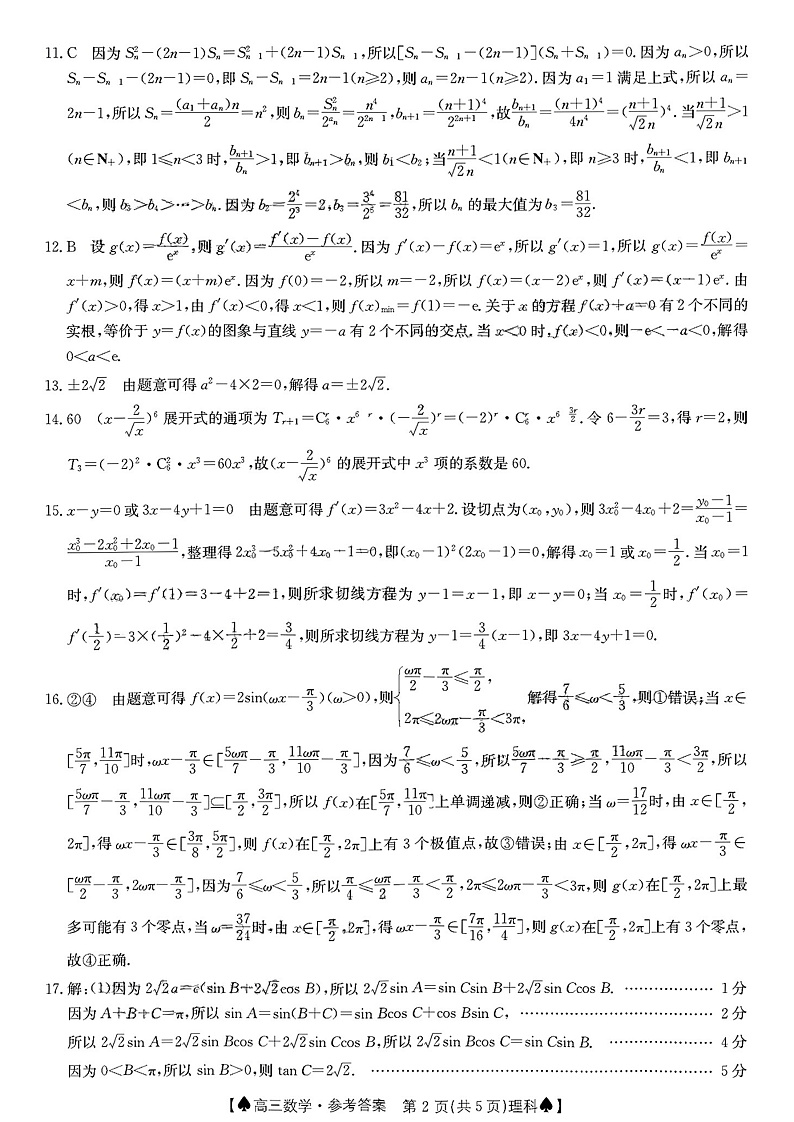 11. C 因为 Sₙ²-(2n-1)Sₙ=S²ₙ₋₁+(2n-1)Sₙ₋₁,所以[Sₙ-Sₙ₋₁-(2n-1)](Sₙ+Sₙ₋₁)=0. 因为 aₙ>0,所以
Sₙ-Sₙ₋₁-(2n-1)=0,即 Sₙ-Sₙ₋₁=2n-1(n≥2),则 aₙ=2n-1(n≥2). 因为 a₁=1 满足上式,所以 aₙ=
2n-1,所以 Sₙ=(a₁+aₙ)n/2=n²,则 bₙ=Sₙ²/2^(aₙ)=n⁴/2^(2n-1),bₙ₊₁=(n+1)⁴/2^(2n+1),故 bₙ₊₁/bₙ=(n+1)⁴/4n⁴=((n+1)/(√2n))⁴. 当 (n+1)/(√2n)>1
(n∈N₊),即 1≤n<3 时,bₙ₊₁/bₙ>1,即 bₙ₊₁>bₙ,则 b₁<b₂;当 (n+1)/(√2n)<1(n∈N₊),即 n≥3 时,bₙ₊₁/bₙ<1,即 bₙ₊₁
<bₙ,则 b₃>b₄>…>bₙ. 因为 b₂=2⁴/2³=2,b₃=3⁴/2⁵=81/32,所以 bₙ 的最大值为 b₃=81/32.
12. B 设 g(x)=f(x)/eˣ,则 g′(x)=(f′(x)-f(x))/eˣ. 因为 f′(x)-f(x)=eˣ,所以 g′(x)=1,所以 g(x)=f(x)/eˣ=
x+m,则 f(x)=(x+m)eˣ. 因为 f(0)=-2,所以 m=-2,所以 f(x)=(x-2)eˣ,则 f′(x)=(x-1)eˣ. 由
f′(x)>0,得 x>1,由 f′(x)<0,得 x<1,则 f(x)min=f(1)=-e. 关于 x 的方程 f(x)+a=0 有 2 个不同的
实根,等价于 y=f(x)的图象与直线 y=-a 有 2 个不同的交点. 当 x<0 时,f(x)<0,则-e<-a<0,解得
0<a<e.
13. ±2√2 由题意可得 a²-4×2=0,解得 a=±2√2.
14. 60 (x-2/√x)⁶ 展开式的通项为 Tᵣ₊₁=C₆ʳ·x⁶⁻ʳ·(-2/√x)ʳ=(-2)ʳ·C₆ʳ·x^(6-3r/2). 令 6-3r/2=3,得 r=2,则
T₃=(-2)²·C₆²·x³=60x³,故(x-2/√x)⁶ 的展开式中 x³ 项的系数是 60.
15. x-y=0 或 3x-4y+1=0 由题意可得 f′(x)=3x²-4x+2. 设切点为(x₀,y₀),则 3x₀²-4x₀+2=(y₀-1)/(x₀-1)=
(x₀³-2x₀²+2x₀-1)/(x₀-1),整理得 2x₀³-5x₀²+4x₀-1=0,即(x₀-1)²(2x₀-1)=0,解得 x₀=1 或 x₀=1/2. 当 x₀=1
时,f′(x₀)=f′(1)=3-4+2=1,则所求切线方程为 y-1=x-1,即 x-y=0;当 x₀=1/2 时,f′(x₀)=
f′(1/2)=3×(1/2)²-4×1/2+2=3/4,则所求切线方程为 y-1=3/4(x-1),即 3x-4y+1=0.
16. ②④ 由题意可得 f(x)=2sin(ωx-π/3)(ω>0),则{ωπ/2-π/3≤π/2, 2π≤2ωπ-π/3<3π, 解得 7/6≤ω<5/3,则①错误;当 x∈
[5π/7,11π/10]时,ωx-π/3∈[5ωπ/7-π/3,11ωπ/10-π/3],因为 7/6≤ω<5/3,所以 5ωπ/7-π/3≥π/2,11ωπ/10-π/3<3π/2,所以
[5ωπ/7-π/3,11ωπ/10-π/3]⊆[π/2,3π/2],所以 f(x)在[5π/7,11π/10]上单调递减,则②正确;当 ω=17/12时,由 x∈[π/2,
2π],得 ωx-π/3∈[3π/8,5π/2],则 f(x)在[π/2,2π]上有 3 个极值点,故③错误;由 x∈[π/2,2π],得 ωx-π/3∈
[ωπ/2-π/3,2ωπ-π/3],因为 7/6≤ω<5/3,所以 π/4≤ωπ/2-π/3<π/2,2π≤2ωπ-π/3<3π,则 g(x)在[π/2,2π]上最
多可能有 3 个零点,当 ω=37/24时,由 x∈[π/2,2π],得 ωx-π/3∈[7π/16,11π/4],则 g(x)在[π/2,2π]上有 3 个零点,
故④正确.
17. 解:(1)因为 2√2a=c(sin B+2√2cos B),所以 2√2sin A=sin Csin B+2√2sin Ccos B. ……………… 1 分
因为 A+B+C=π,所以 sin A=sin(B+C)=sin Bcos C+cos Bsin C, ……………… 2 分
所以 2√2sin A=2√2sin Bcos C+2√2sin Ccos B,所以 2√2sin Bcos C=sin Csin B. ……………… 4 分
因为 0<B<π,所以 sin B>0,则 tan C=2√2. ……………… 5 分
【♠高三数学·参考答案 第 2 页(共 5 页)理科♠】